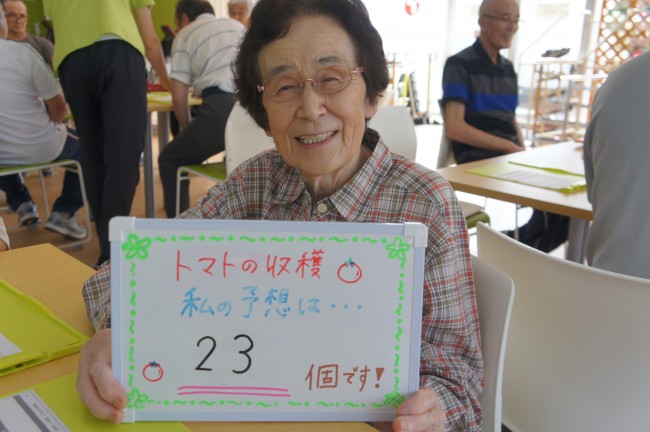 トマトの収穫
私の予想は・・・
23
個です!